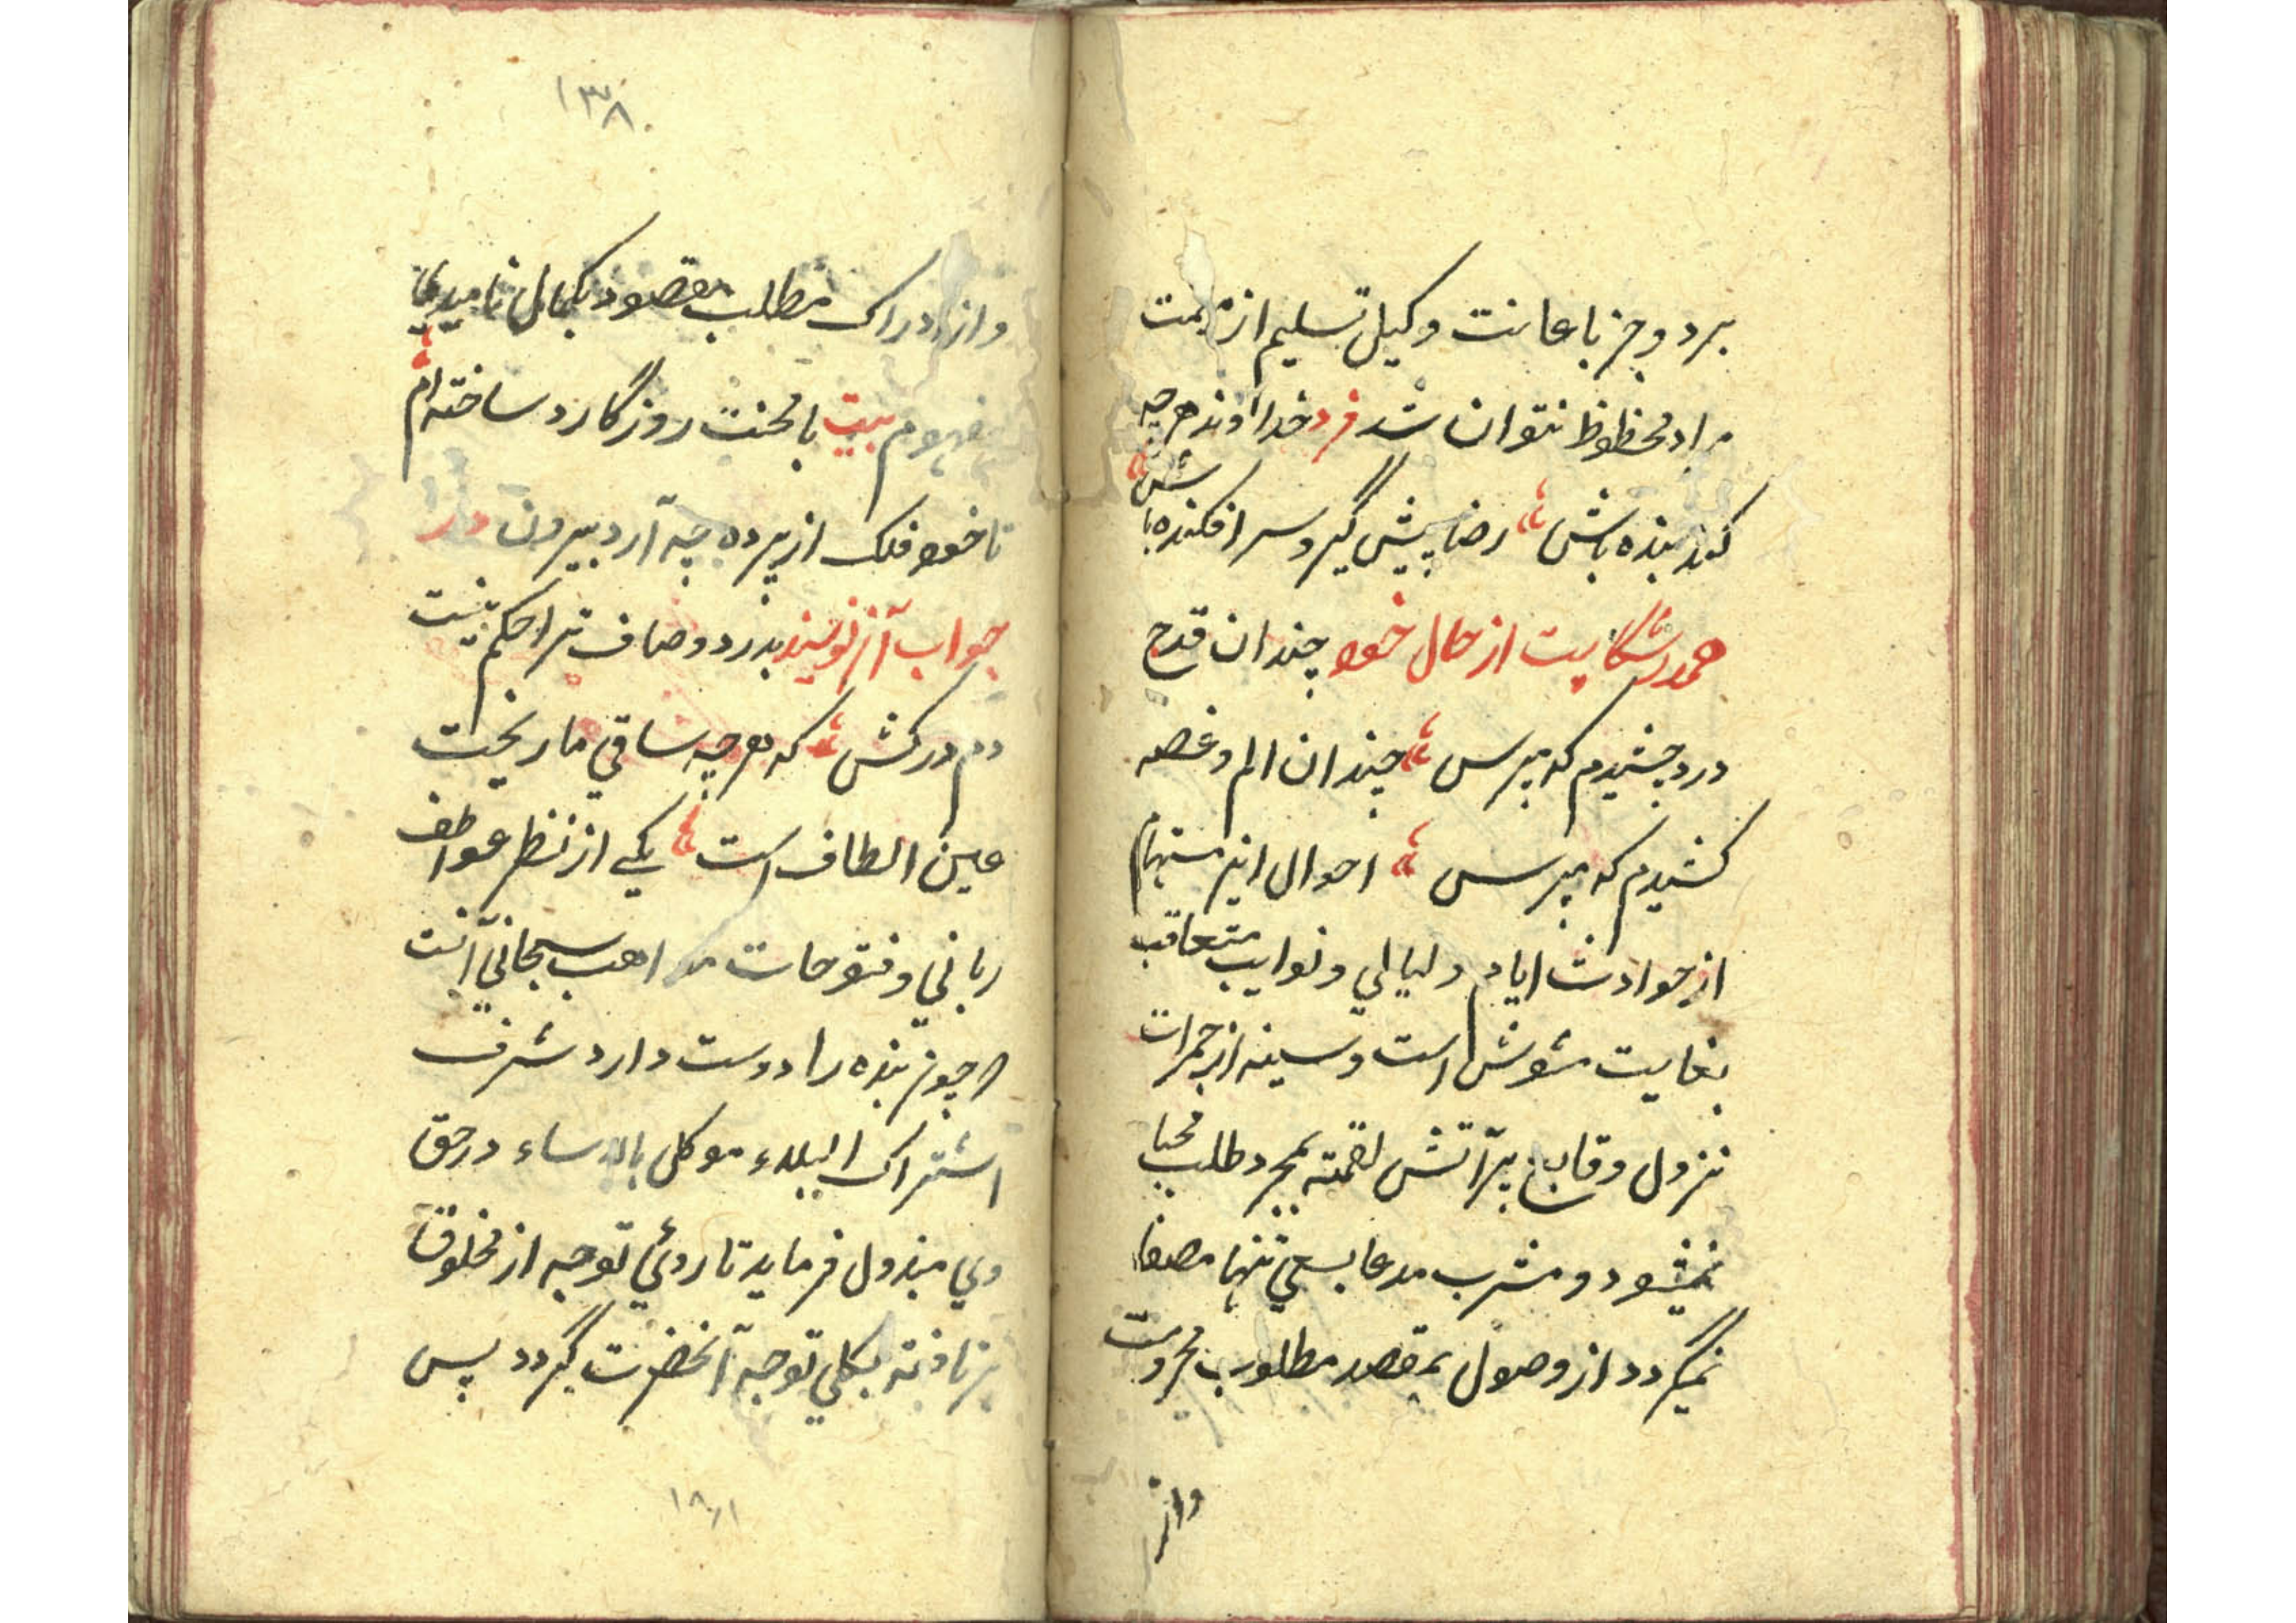 برد و جز باعانت وکیل تسلیم از مت
مراد محظوظ نتوان شد فرد خداوند هرچه
کند بنده باش رضا پیش گیر و سر افکنده باش
در شکایت از حال خود چندان قدح
درد چشیدم که مپرس چندان الم و غصه
کشیدم که مپرس احوال این مستهام
از حوادث ایام و لیالی و نوایب متعاقب
بغایت مشوش است و سینه از جمرات
نزول وقایع پر آتش لقمه بمجرد طلب محیا
نمیشود و مشرب مدعا بسعی تنها مصفا
نمیگردد از وصول بمقصد مطلوب محرومست
واز
۱۳۸
واز ادراک مطلب مقصود بکمال ناامیدی
مفهوم بیت با محنت روزگار در ساخته ام
تا خود فلک از پرده چه آرد بیرون در
جواب آن نویسند بدرد و صاف ترا حکم نیست
دم درکش که هرچه ساقی ما ریخت
عین الطاف است یکی از نظر عواطف
ربانی و فتوحات مواهب سبحانی آنست
که چون بنده را دوست دارد شرف
اشتراک البلاء موکل بالانساء در حق
وی مبذول فرماید تا روئی توجه از مخلوقات
بر تافته بکلی توجه آنحضرت گردد پس
۱۸۱